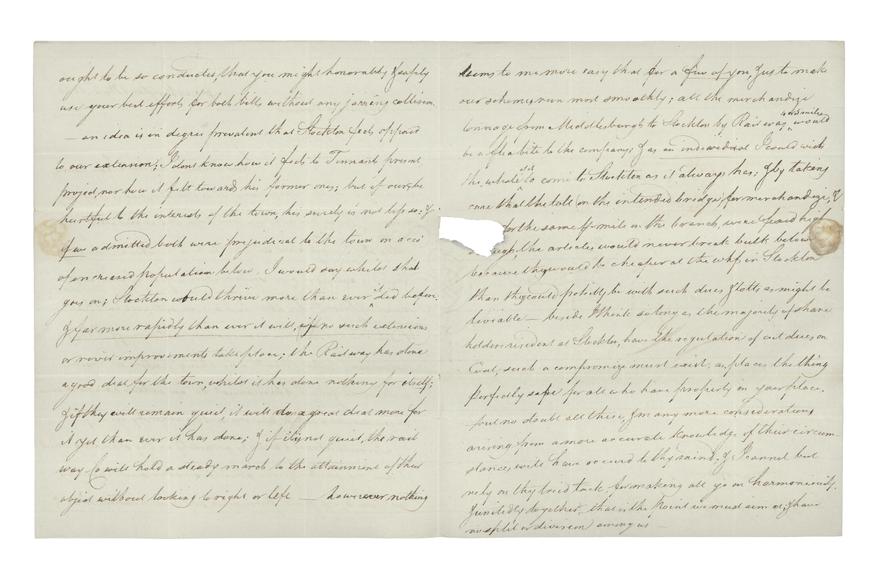 ought to be so conducted, that you might honorably & safely
use your best efforts for both bills without any jarring collision
— an idea is in degree prevalent that Stockton feels opposed
to our extension; I dont know how it feels to Tennants present
project, nor how it felt towards his former ones; but if ours be
hurtful to the interests of the town, his surely is not less so; &
if we admitted both were prejudicial to the town on acct
of an increased Population below, I would say whilst that
goes on; Stockton would thrive more than ever it did before,
& far more rapidly than ever it will, if no such extensions
or river improvements take place; the Railway has done
a good deal for the town, whilst it has done nothing for itself;
& if they will remain quiet, it will do a great deal more for
it yet than ever it has done; & if it is not quiet, the rail
way Co will hold a steady march to the attainment of their
object without looking to right or left — however nothing
seems to me more easy than for a few of you, & us to make
our schemes run most smoothly; all the merchandize
tonnage from Middlesburgh to Stockton by Railway 4 or 5 miles would
be a flea bite to the company & as an individual I could wish
the whole still to come to Stockton as it always has; & by taking
care that the toll on the intended bridge for merchandize, &
for the same 4 miles on the branch were fixed high
enough, the articles would never break bulk below
because they would be cheaper at the whfs in Stockton
than they could possibly be with such dues & tolls as might be
leviable — beside I think so long as the majority of share
holders resident at Stockton, have the regulation of exit dues on
Coal, such a compromize must exist, as places the thing
perfectly safe for all who have property in your place.
but no doubt all these, & many more considerations
arising from a more accurate knowledge of their circum
stances will have occured to thy mind, & I cannot but
rely on thy tried tact, for making all go on harmoniously,
& unitedly together, that is the Point we must aim at, & have
no split or division among us —